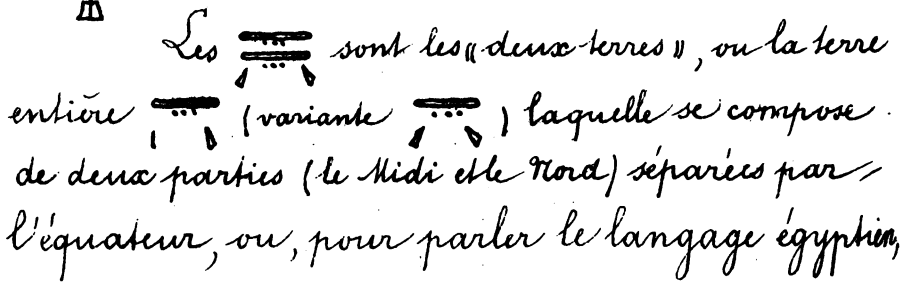 Les 𓇿𓇿 sont les « deux terres », ou la terre
entière 𓇿 (variante 𓇿) laquelle se compose
de deux parties (le Midi et le Nord) séparées par
l'équateur, ou, pour parler le langage égyptien,